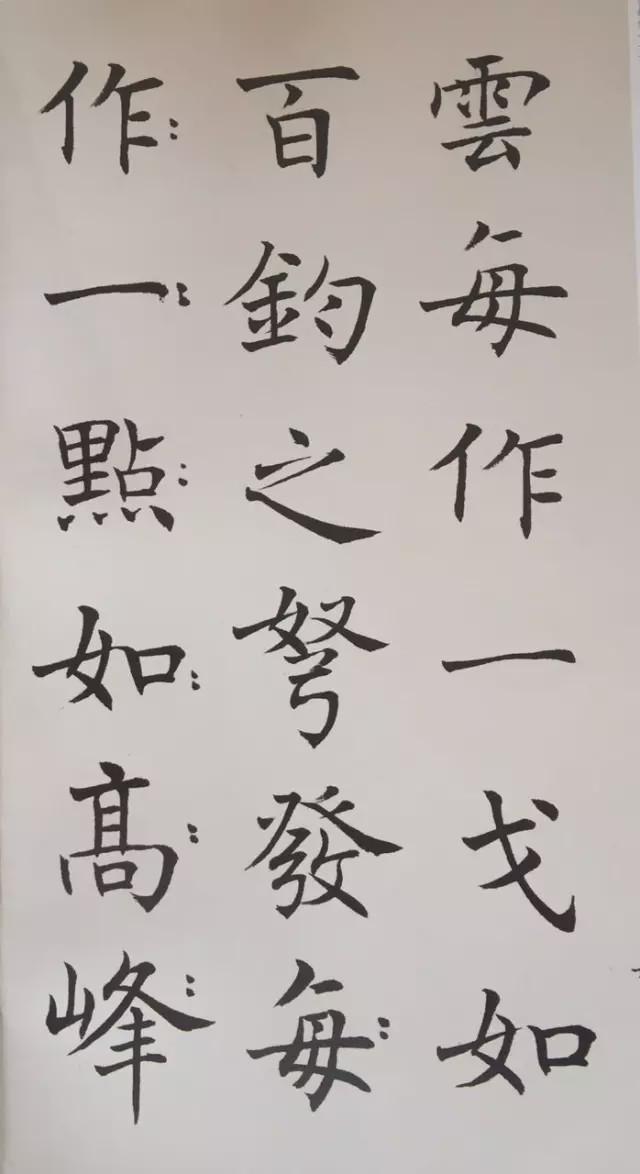 雲每作一戈如
百鈞之弩發每
作一點如高峰